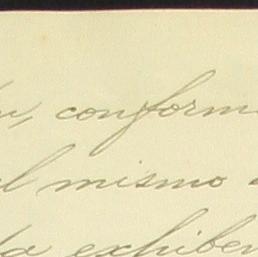 conform
el mismo
exhiben